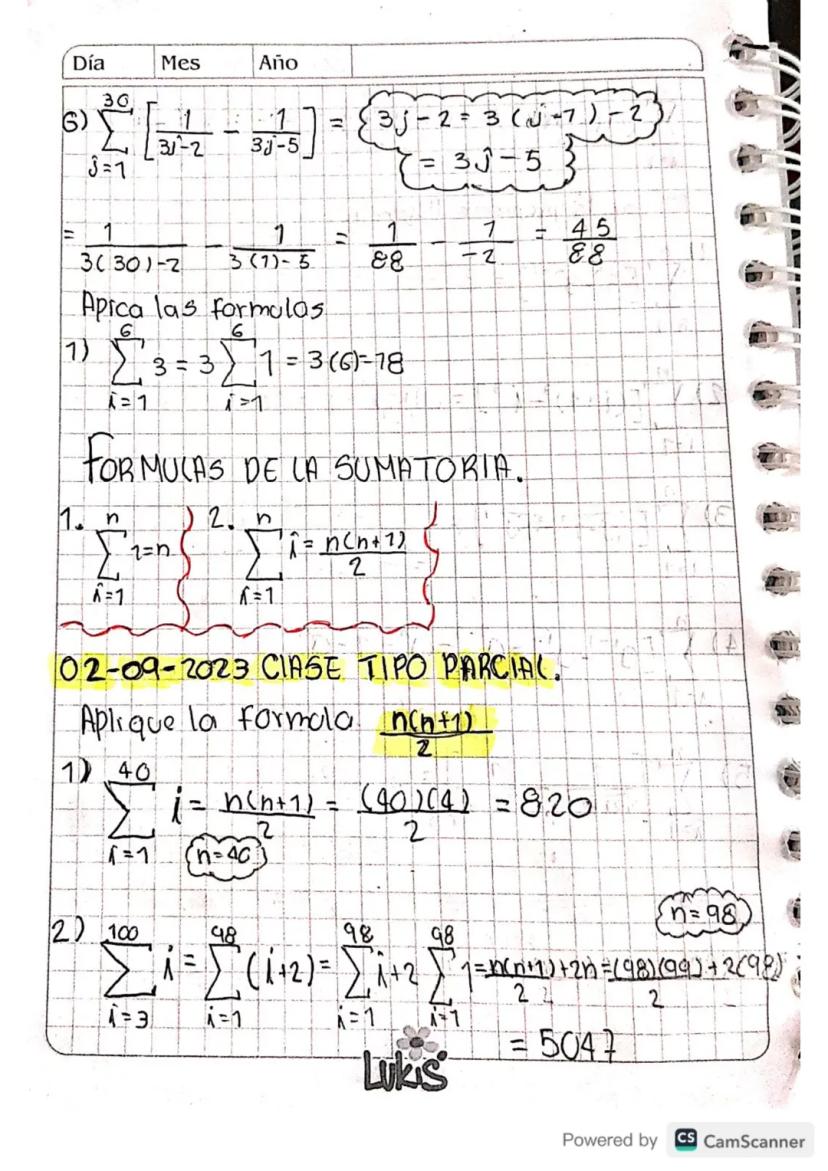 Día Mes Año
6) 30 ∑ j=1 [1/(3j-2) - 1/(3j-5)] = 3j-2 = 3(j-1)-2
= 3j-5
= 1/(3(30)-2) - 1/(3(1)-5) = 1/88 - 1/-2 = 45/88
Aprica las formulas
1) 6 ∑ i=1 3 = 3 6 ∑ i=1 1 = 3(6)=18
FORMULAS DE LA SUMATORIA.
1. n ∑ i=1 1=n 2. n ∑ i=1 i = n(n+1)/2
02-09-2023 CLASE TIPO PARCIAL.
Aplique la formola n(n+1)/2
1) 40 ∑ i=1 i = n(n+1)/2 = (40)(4)/2 = 820
n=40
n=98
2) 100 ∑ i=3 i = 98 ∑ i=1 (i+2) = 98 ∑ i=1 i+2 98 ∑ i=1 1 = n(n+1)/2 +2n = (98)(99)/2 + 2(98)
= 5047
LUKIS
Powered by CS CamScanner